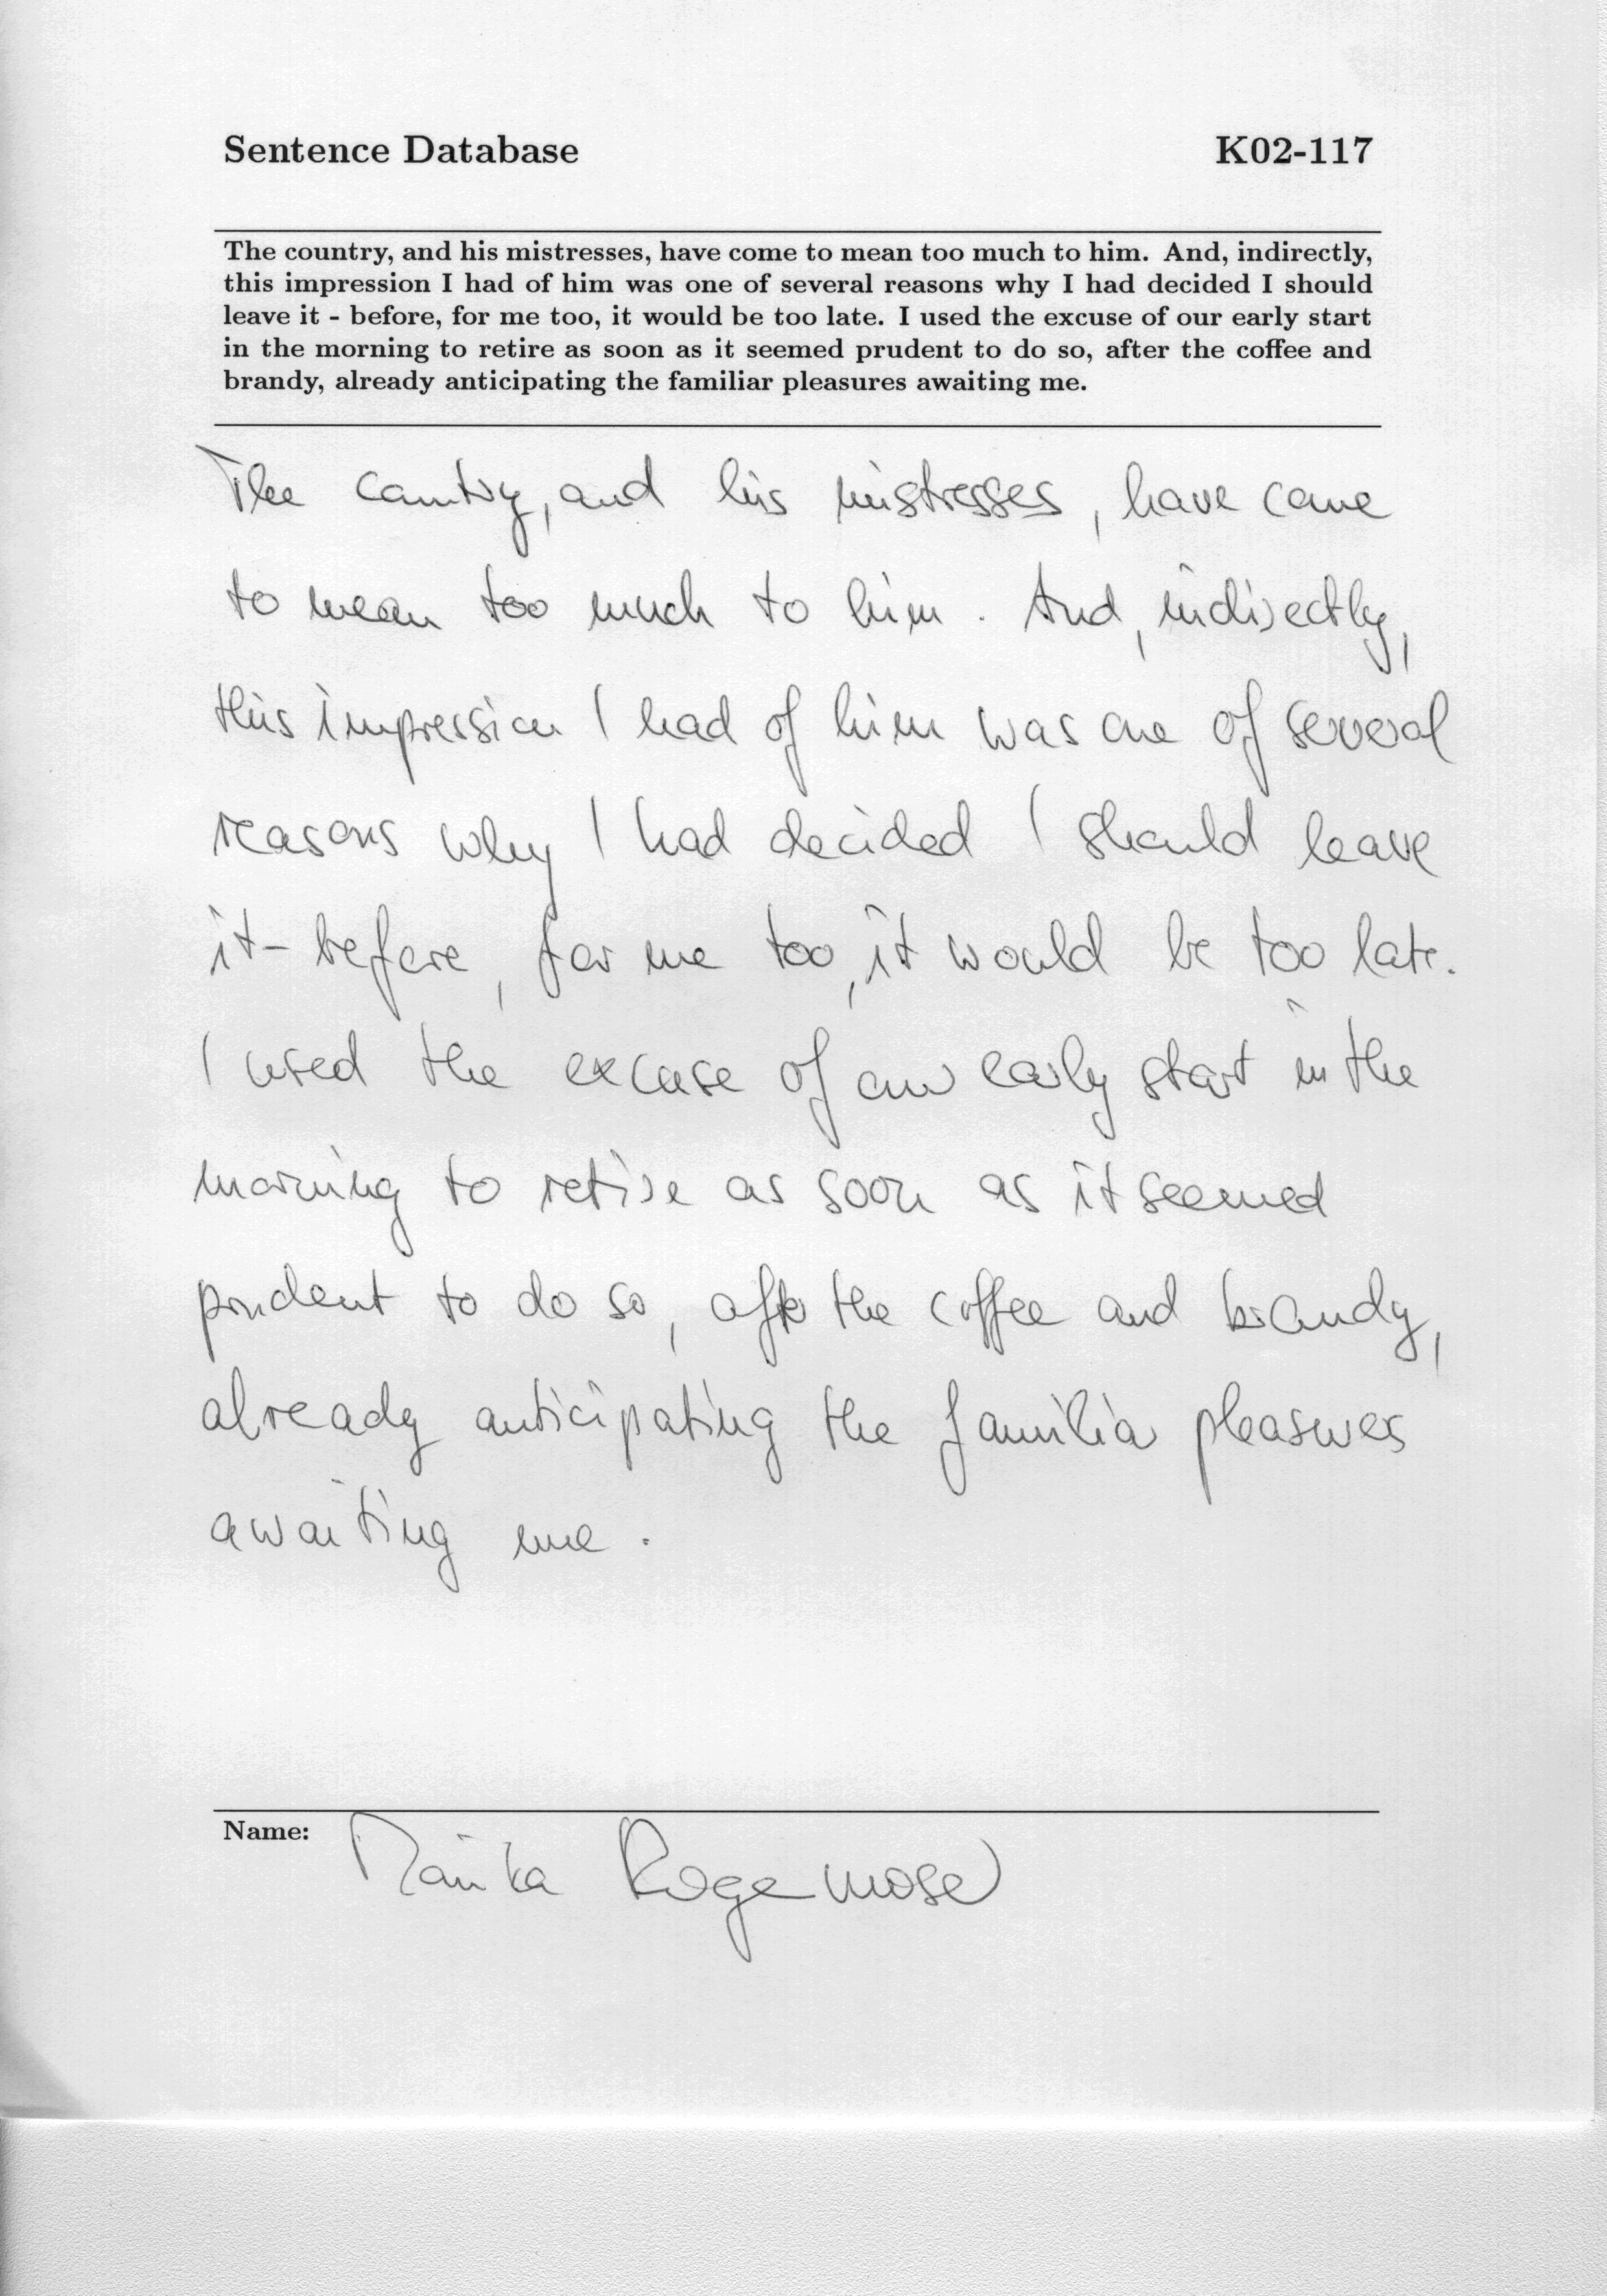 Sentence Database K02-117
The country, and his mistresses, have come to mean too much to him. And, indirectly,
this impression I had of him was one of several reasons why I had decided I should
leave it - before, for me too, it would be too late. I used the excuse of our early start
in the morning to retire as soon as it seemed prudent to do so, after the coffee and
brandy, already anticipating the familiar pleasures awaiting me.
The country, and his mistresses, have come
to mean too much to him. And, indirectly,
this impression I had of him was one of several
reasons why I had decided I should leave
it - before, for me too, it would be too late.
I used the excuse of our early start in the
morning to retire as soon as it seemed
prudent to do so, after the coffee and brandy,
already anticipating the familiar pleasures
awaiting me.
Name: